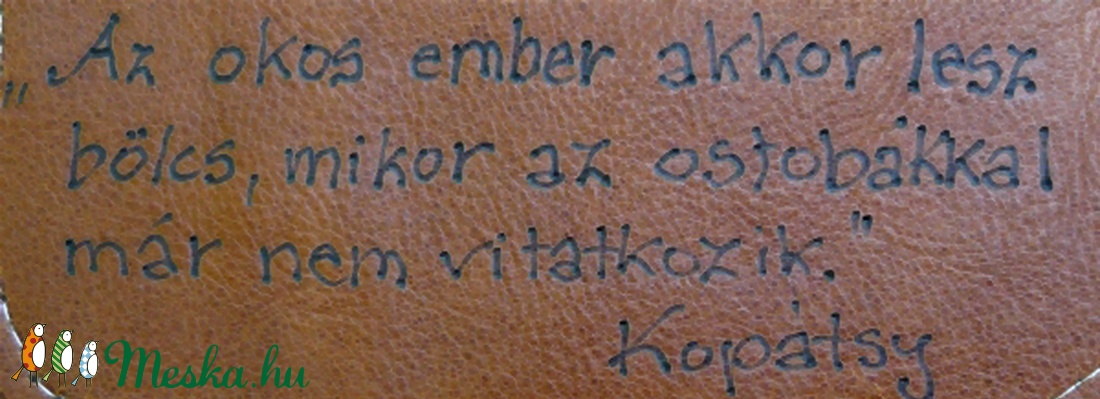 „Az okos ember akkor lesz
bölcs, mikor az ostobákkal
már nem vitatkozik."
Kopátsy
Meska.hu